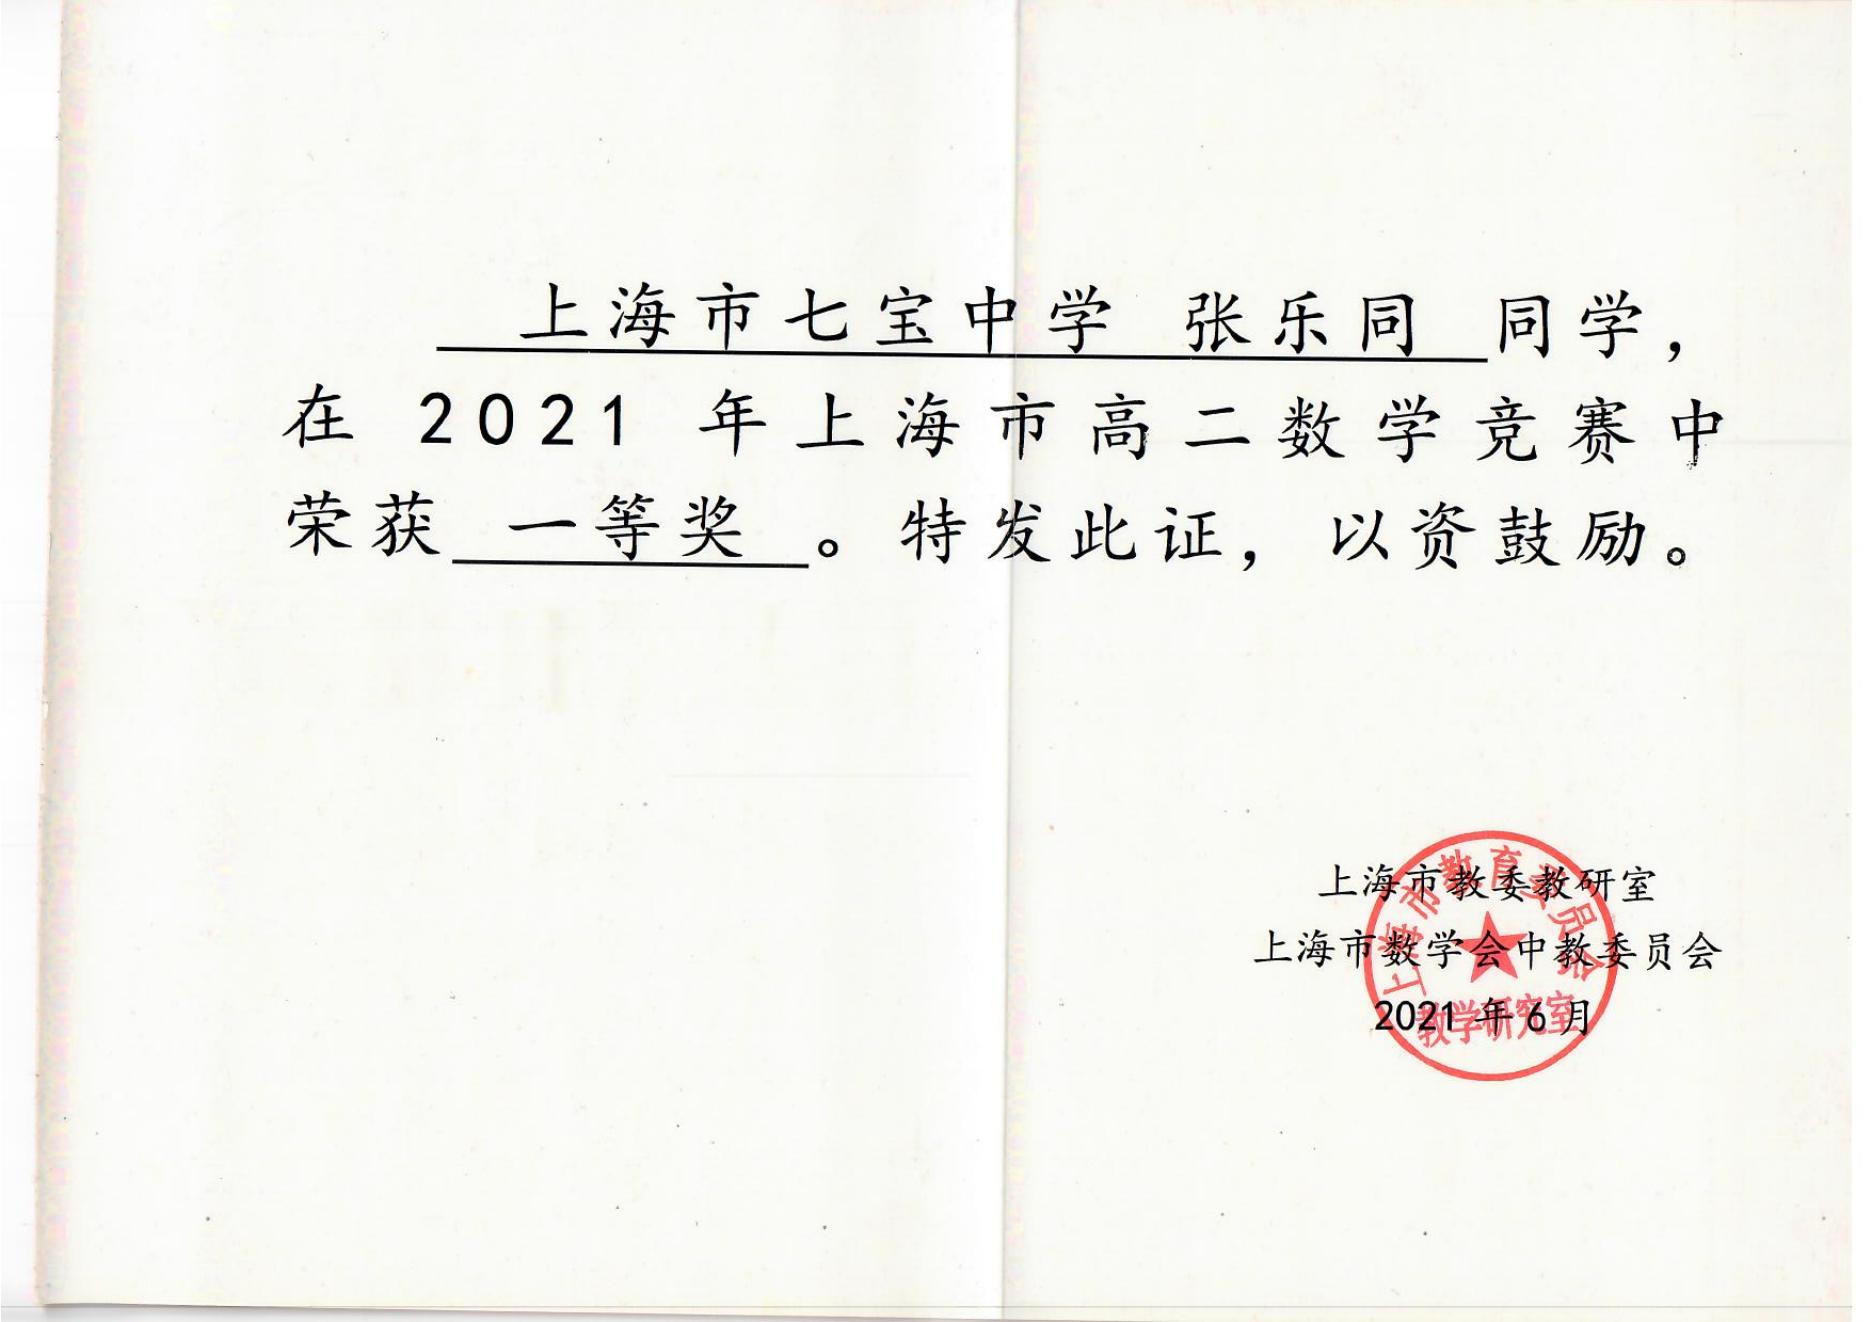 上海市七宝中学 张乐同 同学，
在 2021 年上海市高二数学竞赛中
荣获 一等奖 。特发此证，以资鼓励。
上海市教委教研室
上海市数学会中教委员会
2021 年 6 月
上海市教育委员会
教学研究室